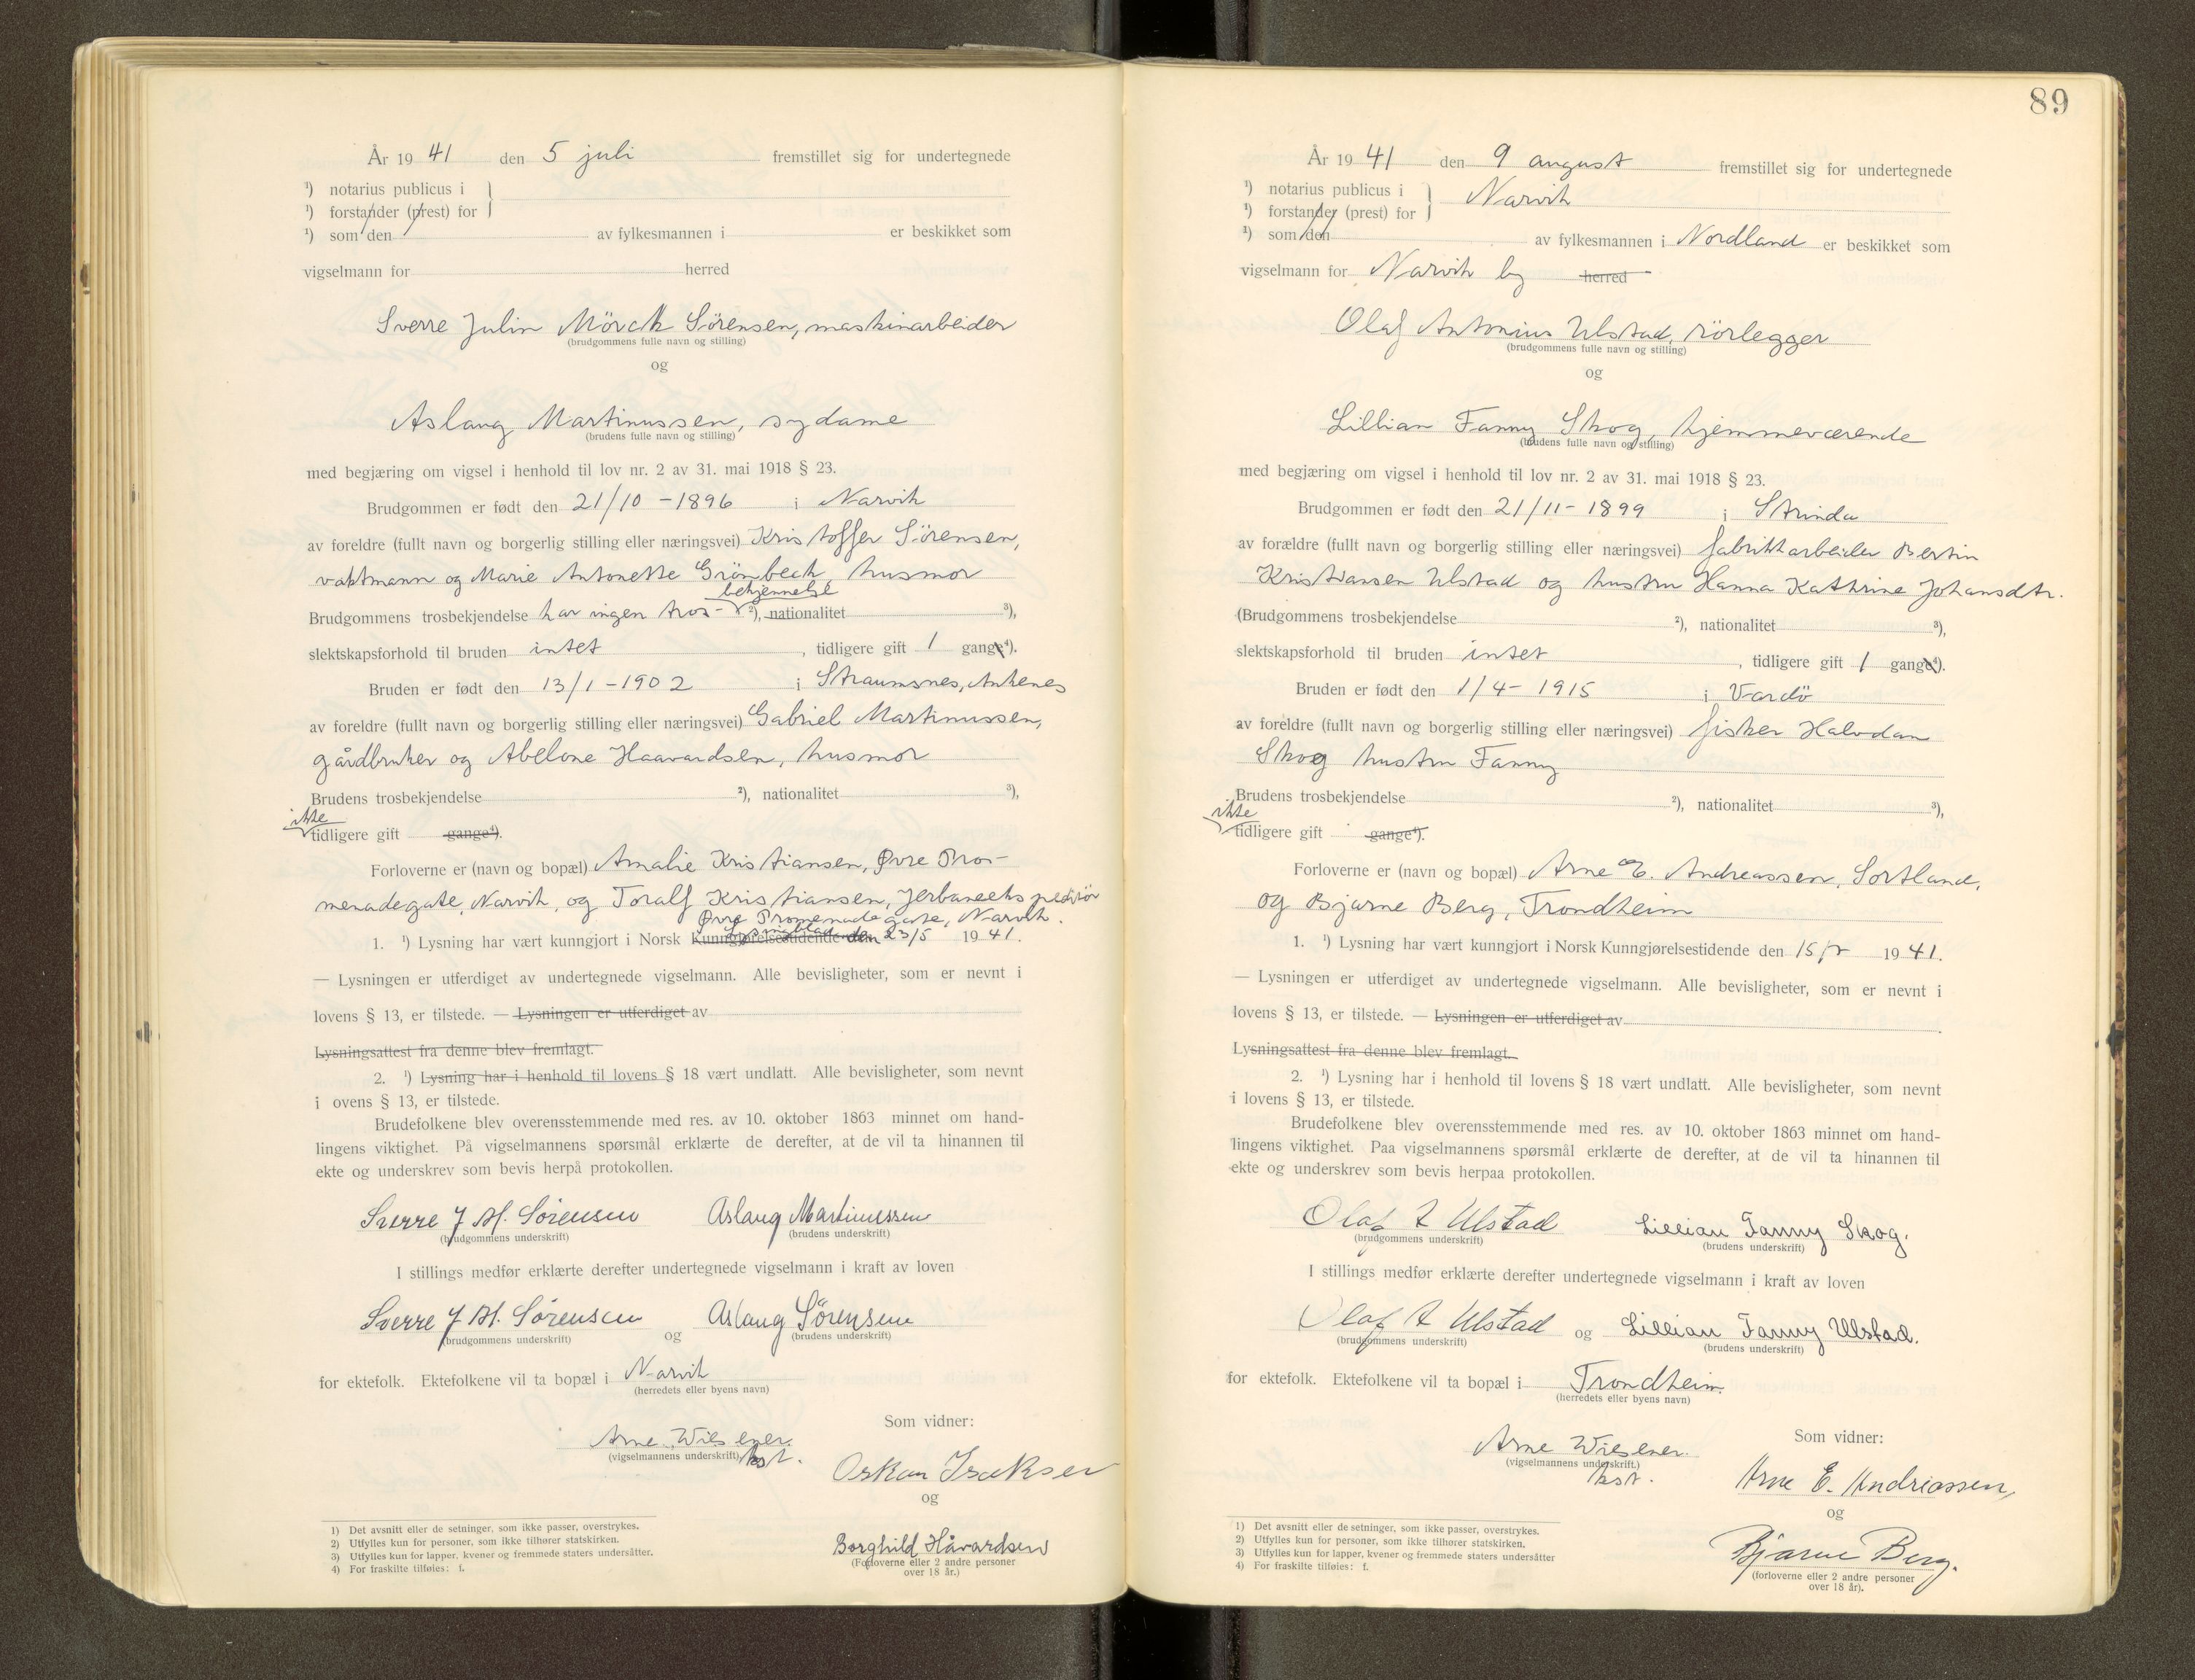 År 1941 den 5 juli fremstillet sig for undertegnede
¹) notarius publicus i
¹) forstander (prest) for
¹) som den av fylkesmannen i er beskikket som
vigselmann for herred
Sverre Julin Mörck Sörensen, maskinarbeider
(brudgommens fulle navn og stilling)
og
Aslaug Martinussen, sydame
(brudens fulle navn og stilling)
med begjæring om vigsel i henhold til lov nr. 2 av 31. mai 1918 § 23.
Brudgommen er født den 21/10 - 1896 i Narvik
av foreldre (fullt navn og borgerlig stilling eller næringsvei) Kristoffer Sörensen,
vaktmann og Marie Antonette Grönbech, husmor
bekjennelse
Brudgommens trosbekjendelse har ingen tros- ²), nationalitet ³),
slektskapsforhold til bruden intet , tidligere gift 1 gange⁴).
Bruden er født den 13/1 - 1902 i Straumsnes, Ankenes
av foreldre (fullt navn og borgerlig stilling eller næringsvei) Gabriel Martinussen,
gårdbruker og Abelone Haavardsen, husmor
Brudens trosbekjendelse ²), nationalitet ³),
ikke
tidligere gift gange⁴).
Forloverne er (navn og bopæl) Amalie Kristiansen, Øvre Pro-
menadegate, Narvik, og Toralf Kristiansen, Jerbaneekspeditör
Øvre Promenade gate, Narvik.
Lysingsblad
1. ¹) Lysning har vært kunngjort i Norsk Kunngjørelsestidende den 23/5 1941.
— Lysningen er utferdiget av undertegnede vigselmann. Alle bevisligheter, som er nevnt i
lovens § 13, er tilstede. — Lysningen er utferdiget av
Lysningsattest fra denne blev fremlagt.
2. ¹) Lysning har i henhold til lovens § 18 vært undlatt. Alle bevisligheter, som nevnt
i ovens § 13, er tilstede.
Brudefolkene blev overensstemmende med res. av 10. oktober 1863 minnet om hand-
lingens viktighet. På vigselmannens spørsmål erklærte de derefter, at de vil ta hinannen til
ekte og underskrev som bevis herpå protokollen.
Sverre J M. Sörensen Aslaug Martinussen
(brudgommens underskrift) (brudens underskrift)
I stillings medfør erklærte derefter undertegnede vigselmann i kraft av loven
Sverre J M. Sörensen og Aslaug Sörensen
(brudgommens underskrift) (brudens underskrift)
for ektefolk. Ektefolkene vil ta bopæl i Narvik
(herredets eller byens navn)
Som vidner:
Arne Wiesener.
(vigselmannens underskrift) kst.
Oskar Isaksen
og
Borghild Håvardsen
(Forloverne eller 2 andre personer
over 18 år.)
1) Det avsnitt eller de setninger, som ikke passer, overstrykes.
2) Utfylles kun for personer, som ikke tilhører statskirken.
3) Utfylles kun for lapper, kvener og fremmede staters undersåtter.
4) For fraskilte tilføies: f.
89
År 1941 den 9 august fremstillet sig for undertegnede
¹) notarius publicus i Narvik
¹) forstander (prest) for
¹) som den av fylkesmannen i Nordland er beskikket som
vigselmann for Narvik by herred
Olaf Antonius Ulstad, rörlegger
(brudgommens fulle navn og stilling)
og
Lillian Fanny Skog, hjemmeværende
(brudens fulle navn og stilling)
med begjæring om vigsel i henhold til lov nr. 2 av 31. mai 1918 § 23.
Brudgommen er født den 21/11 - 1899 i Strinda
av forældre (fullt navn og borgerlig stilling eller næringsvei) fabrikkarbeider Bertin
Kristiansen Ulstad og hustru Hanna Kathrine Johansdtr.
(Brudgommens trosbekjendelse ²), nationalitet ³),
slektskapsforhold til bruden intet , tidligere gift 1 gange⁴).
Bruden er født den 1/4 - 1915 i Vardö
av foreldre (fullt navn og borgerlig stilling eller næringsvei) fisker Halvdan
Skog hustru Fanny
Brudens trosbekjendelse ²), nationalitet ³),
ikke
tidligere gift gange⁴).
Forloverne er (navn og bopæl) Arne E. Andreassen, Sortland,
og Bjarne Berg, Trondheim
1. ¹) Lysning har vært kunngjort i Norsk Kunngjørelsestidende den 1941.
— Lysningen er utferdiget av undertegnede vigselmann. Alle bevisligheter, som er nevnt i
lovens § 13, er tilstede. — Lysningen er utferdiget av
Lysningsattest fra denne blev fremlagt.
2. ¹) Lysning har i henhold til lovens § 18 vært undlatt. Alle bevisligheter, som nevnt
i lovens § 13, er tilstede.
Brudefolkene blev overensstemmende med res. av 10. oktober 1863 minnet om hand-
lingens viktighet. Paa vigselmannens spørsmål erklærte de derefter, at de vil ta hinannen til
ekte og underskrev som bevis herpaa protokollen.
Olaf A Ulstad Lillian Fanny Skog.
(brudgommens underskrift) (brudens underskrift)
I stillings medfør erklærte derefter undertegnede vigselmann i kraft av loven
Olaf A Ulstad og Lillian Fanny Ulstad.
(brudgommens underskrift) (brudens underskrift)
for ektefolk. Ektefolkene vil ta bopæl i Trondheim.
(herredets eller byens navn)
Som vidner:
Arne Wiesener.
(vigselmannens underskrift.)
kst.
Arne E. Andriassen,
og
Bjarne Berg.
(forloverne eller 2 andre personer
over 18 år).
1) Det avsnitt eller de setninger, som ikke passer, overstrykes.
2) Utfylles kun for personer, som ikke tilhører statskirken.
3) Utfylles kun for lapper, kvener og fremmede staters undersåtter
4) For fraskilte tilføies: f.